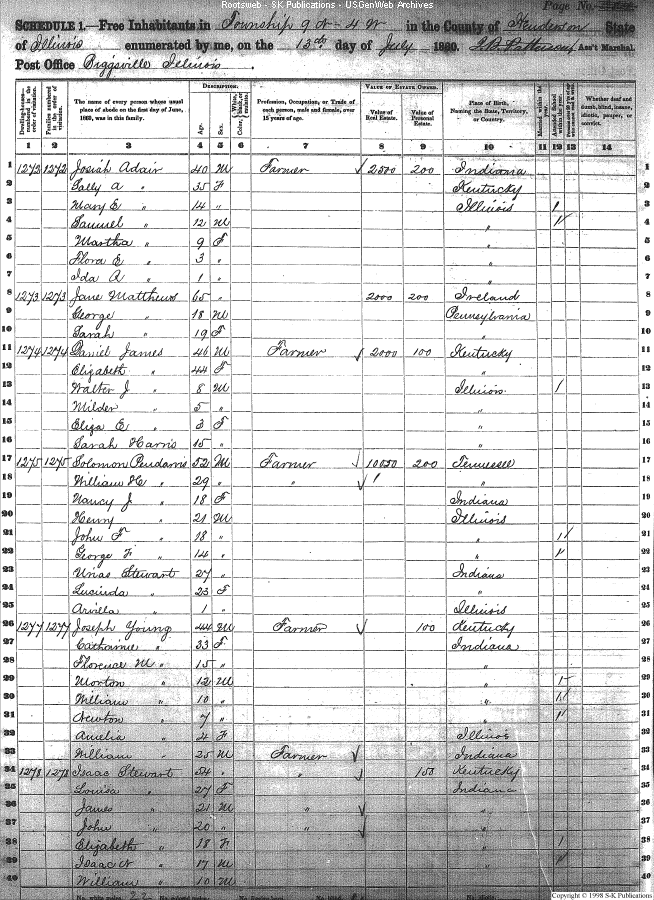 Rootsweb - SK Publications - USGenWeb Archives
Page No.
SCHEDULE 1.—Free Inhabitants in Township 9 N - 4 W in the County of Henderson State
of Illinois enumerated by me, on the 13th day of July 1860. Ass't Marshal
Post Office Biggsville Illinois.
Dwelling-houses— numbered in the order of visitation. Families numbered in the order of visitation. The name of every person whose usual place of abode on the first day of June, 1860, was in this family. DESCRIPTION. Age. Sex. Color, Profession, Occupation, or Trade of each person, male and female, over 15 years of age. VALUE OF ESTATE OWNED. Value of Real Estate. Value of Personal Estate. Place of Birth, Naming the State, Territory, or Country. Married within the year. Attended School within the year. Whether deaf and dumb, blind, insane, idiotic, pauper, or convict.
1 2 3 4 5 6 7 8 9 10 11 12 13 14
1 1272 1272 Josiah Adair 40 M Farmer 2500 200 Indiana 1
2 Sally A " 35 F Kentucky 2
3 Mary E " 14 " Illinois 1 3
4 Samuel " 12 M " 1 4
5 Martha " 9 F " 5
6 Flora E " 3 " " 6
7 Ida A " 1 " " 7
8 1273 1273 Jane Matthews 65 " 2000 200 Ireland 8
9 George " 18 M Pennsylvania 9
10 Sarah " 19 F " 10
11 1274 1274 Daniel James 46 M Farmer 2000 100 Kentucky 11
12 Elizabeth " 44 F " 12
13 Walter J " 8 M Illinois 1 13
14 Milder " 5 " " 14
15 Eliza E " 3 F " 15
16 Sarah Harris 15 " " 16
17 1275 1275 Solomon 52 M Farmer 200 Tennessee 17
18 William H " 29 " " " 18
19 Nancy J " 18 F Indiana 19
20 Henry " 21 M Illinois 20
21 John F " 18 " " 1 21
22 George F " 14 " " 1 22
23 Urias Stewart 27 " Indiana 23
24 Lucinda " 23 F " 24
25 Arvilla " 1 " Illinois 25
26 1277 1277 Joseph Young 44 M Farmer 100 Kentucky 26
27 Catharine " 33 F Indiana 27
28 Florence M " 15 " " 28
29 Morton " 12 M " 1 29
30 William " 10 " " 1 30
31 Newton " 7 " " 1 31
32 Amelia " 4 F Illinois 32
33 William " 25 M Farmer Indiana 33
34 1278 1278 Isaac Stewart 54 " " 150 Kentucky 34
35 Louisa " 27 F Indiana 35
36 James " 21 M " " 36
37 John " 20 " " " 37
38 Elizabeth " 18 F " 1 38
39 Isaac N " 17 M " 1 39
40 William " 10 M " 40
Copyright © 1998 S-K Publications